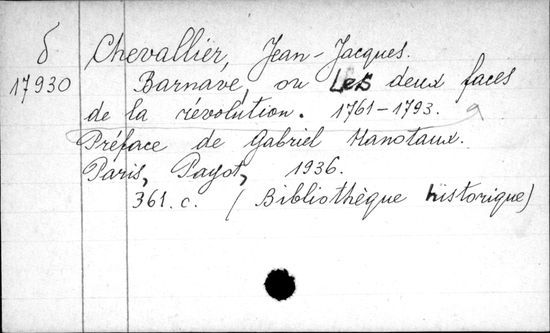 δ Chevallier, Jean-Jacques.
17930 Barnave, ou Les deux faces
de la révolution. 1761-1793.
Préface de Gabriel Hanotaux.
Paris, Payot, 1936.
361. c. (Bibliothèque historique)